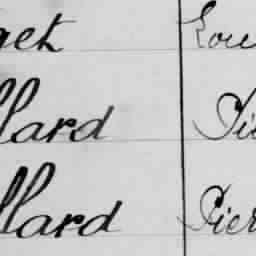 get Lou
llard Pi
llard Pier